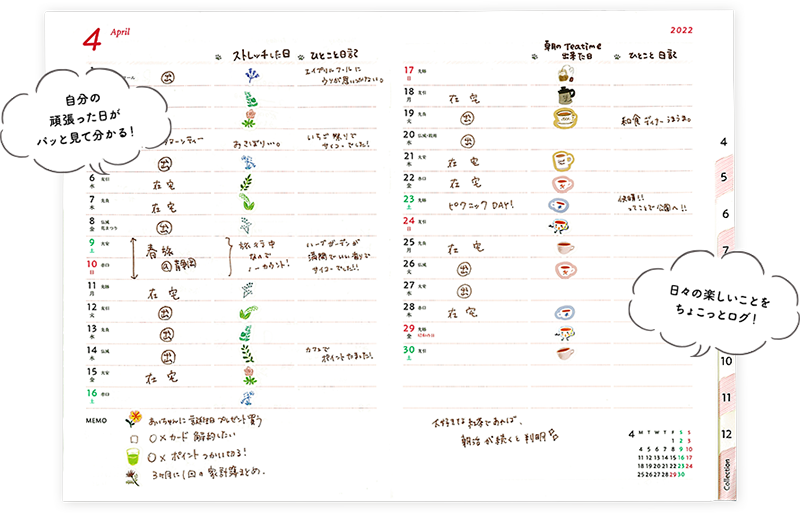 4 April
2022
ストレッチした日 ひとこと日記
朝の Teatime
出来た日
ひとこと日記
自分の
頑張った日が
パッと見て分かる!
出
エイプリルフールに
ウソが思いつかない。
おさぼりい。
いちご祭りで
サイコーでした!
出
6 水 先引 在宅
7 木 先負 在宅
8 金 仏滅 花まつり 出
9 土 大安
春旅
@静岡
旅行中
なので
ノーカウント!
ハーブガーデンが
満開でいい香りで
サイコーでした!!
10 日 赤口
11 月 先勝 在宅
12 火 友引 出
13 水 先負 出
14 木 仏滅 出
カフェで
ポイントたまった!
15 金 大安 在宅
16 土 赤口
MEMO
あいちゃんに誕生日プレゼント買う
○×カード 解約したい
○×ポイントつかい切る!
3ヶ月に1回の家計簿まとめ。
17 日 先勝
18 月 友引 在宅
19 火 先負 出 和食ディナー うまうま。
20 水 仏滅・穀雨 出
21 木 大安 在宅
22 金 赤口 在宅
23 土 先勝 ピクニックDAY!
快晴!!
ってことで公園へ!!
24 日 友引
25 月 先負 在宅
26 火 仏滅 出
27 水 大安 出
28 木 赤口 在宅
29 金 先勝 昭和の日
30 土 友引
大好きな紅茶であれば、
朝活が続くと判明
日々の楽しいことを
ちょこっとログ!
4 M T W T F S S
1 2 3
4 5 6 7 8 9 10
11 12 13 14 15 16 17
18 19 20 21 22 23 24
25 26 27 28 29 30
4
5
6
7
10
11
12
Collection